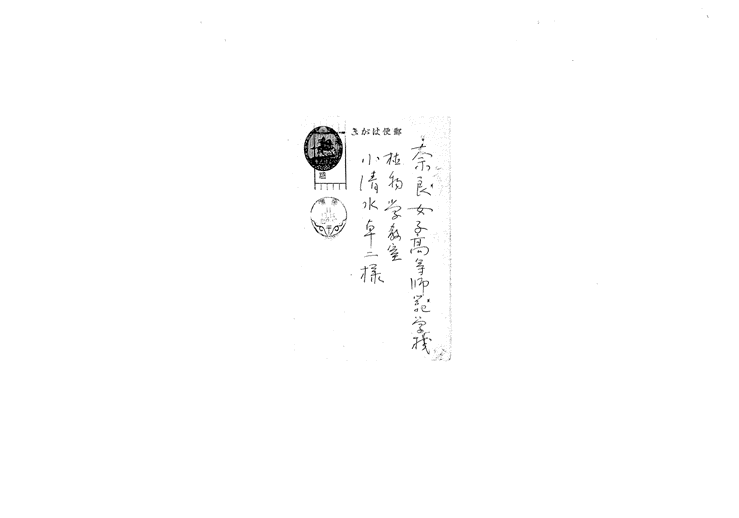 郵便はがき
奈良女子高等師範学校
植物学教室
小清水卓二様